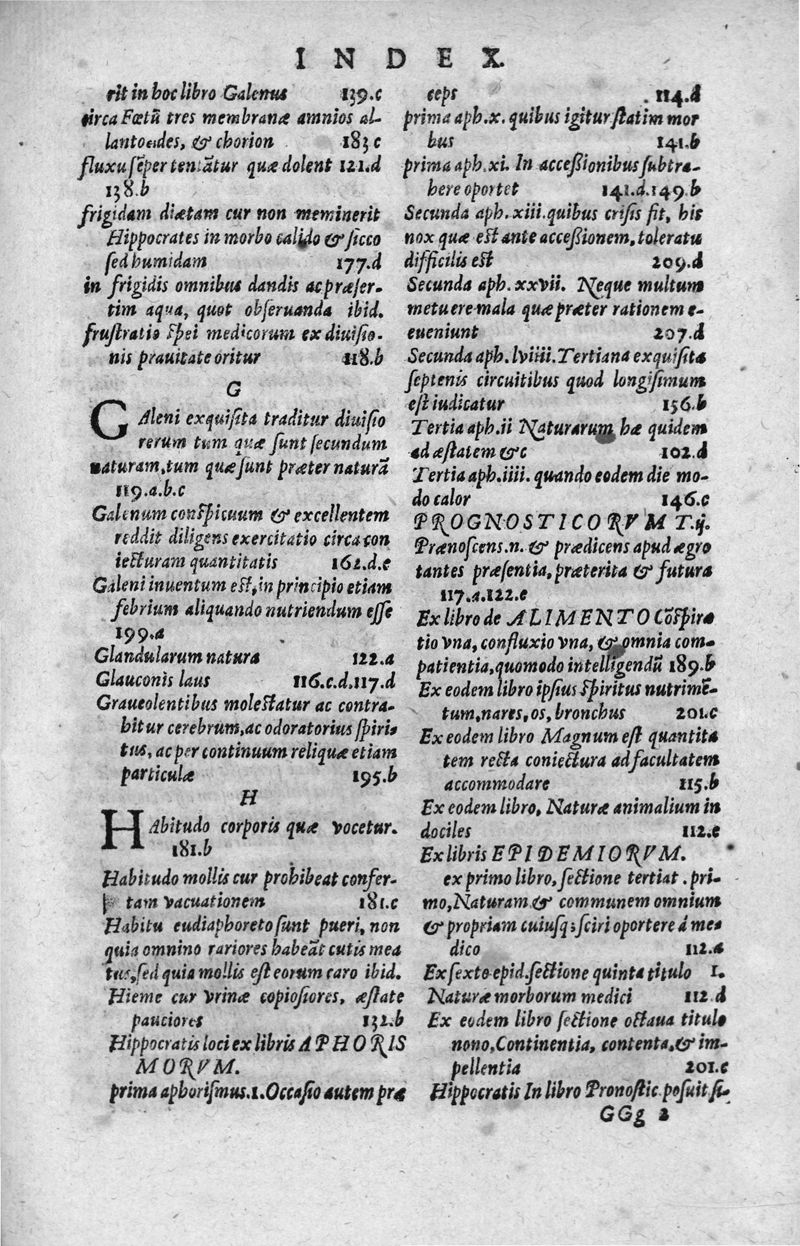 INDEX
rit in hoc libro Galenus 139.c
circa Fœtū tres membranæ amnios al-
lantoades, & chorion 183 c
fluxu sēper tentātur quæ dolent 121.d
138.b
frigidam diætam cur non meminerit
Hippocrates in morbo calido & sicco
sed humidam 177.d
in frigidis omnibus dandis ac præser-
tim aqua, quot obseruanda ibid.
frustratio spei medicorum ex diuisio-
nis prauitate oritur 118.b
G
GAleni exquisita traditur diuisio
rerum tum quæ sunt secundum
naturam, tum quæ sunt præter naturā
119.a.b.c
Galenum conspicuum & excellentem
reddit diligens exercitatio circa con
iecturam quantitatis 162.d.e
Galeni inuentum est, in principio etiam
febrium aliquando nutriendum esse
199.a
Glandularum natura 122.a
Glauconis laus 116.c.d,117.d
Graueolentibus molestatur ac contra-
hitur cerebrum, ac odoratorius spiri
tus, ac per continuum reliquæ etiam
particulæ 195.b
H
HAbitudo corporis quæ vocetur.
181.b
Habitudo mollis cur prohibeat confer-
tam vacuationem 181.c
Habitu eudiaphoreto sunt pueri, non
quia omnino rariores habeāt cutis mea
tus, sed quia mollis est eorum caro ibid.
Hieme cur vrinæ copiosiores, æstate
pauciores 132.b
Hippocratis loci ex libris APHORIS
MORVM.
prima aphorismus.1.Occasio autem præ
ceps 114.d
prima aph.x. quibus igitur statim mor
bus 141.b
prima aph.xi. In accessionibus subtra-
here oportet 141.d.149.b
Secunda aph.xiii.quibus crisis fit, his
nox quæ est ante accessionem, toleratu
difficilis est 209.d
Secunda aph.xxvii. Neque multum
metuere mala quæ præter rationem e-
eueniunt 207.d
Secunda aph.lviiii.Tertiana exquisita
septenis circuitibus quod longissimum
est iudicatur 156.b
Tertia aph.ii Naturarum hæ quidem
ad æstatem &c 102.d
Tertia aph.iiii. quando eodem die mo-
do calor 146.c
PROGNOSTICORVM T.ij.
Prænoscens.n. & prædicens apud ægro
tantes præsentia, præterita & futura
117.a.122.e
Ex libro de ALIMENTO Cōspira
tio vna, confluxio vna, & omnia com-
patientia, quomodo intelligendū 189.b
Ex eodem libro ipsius spiritus nutrimē-
tum, nares, os, bronchus 201.c
Ex eodem libro Magnum est quantita
tem recta coniectura ad facultatem
accommodare 115.b
Ex eodem libro, Naturæ animalium in
dociles 112.e
Ex libris EPIDEMIORVM.
ex primo libro, sectione tertiat .pri-
mo, Naturam & communem omnium
& propriam cuiusq; sciri oportere á me
dico 112.a
Ex sexto epid.sectione quinta titulo 1.
Naturæ morborum medici 112 d
Ex eodem libro sectione octaua titulo
nono, Continentia, contenta, & im-
pellentia 201.c
Hippocratis In libro Pronostic.posuit si-
GGg 2